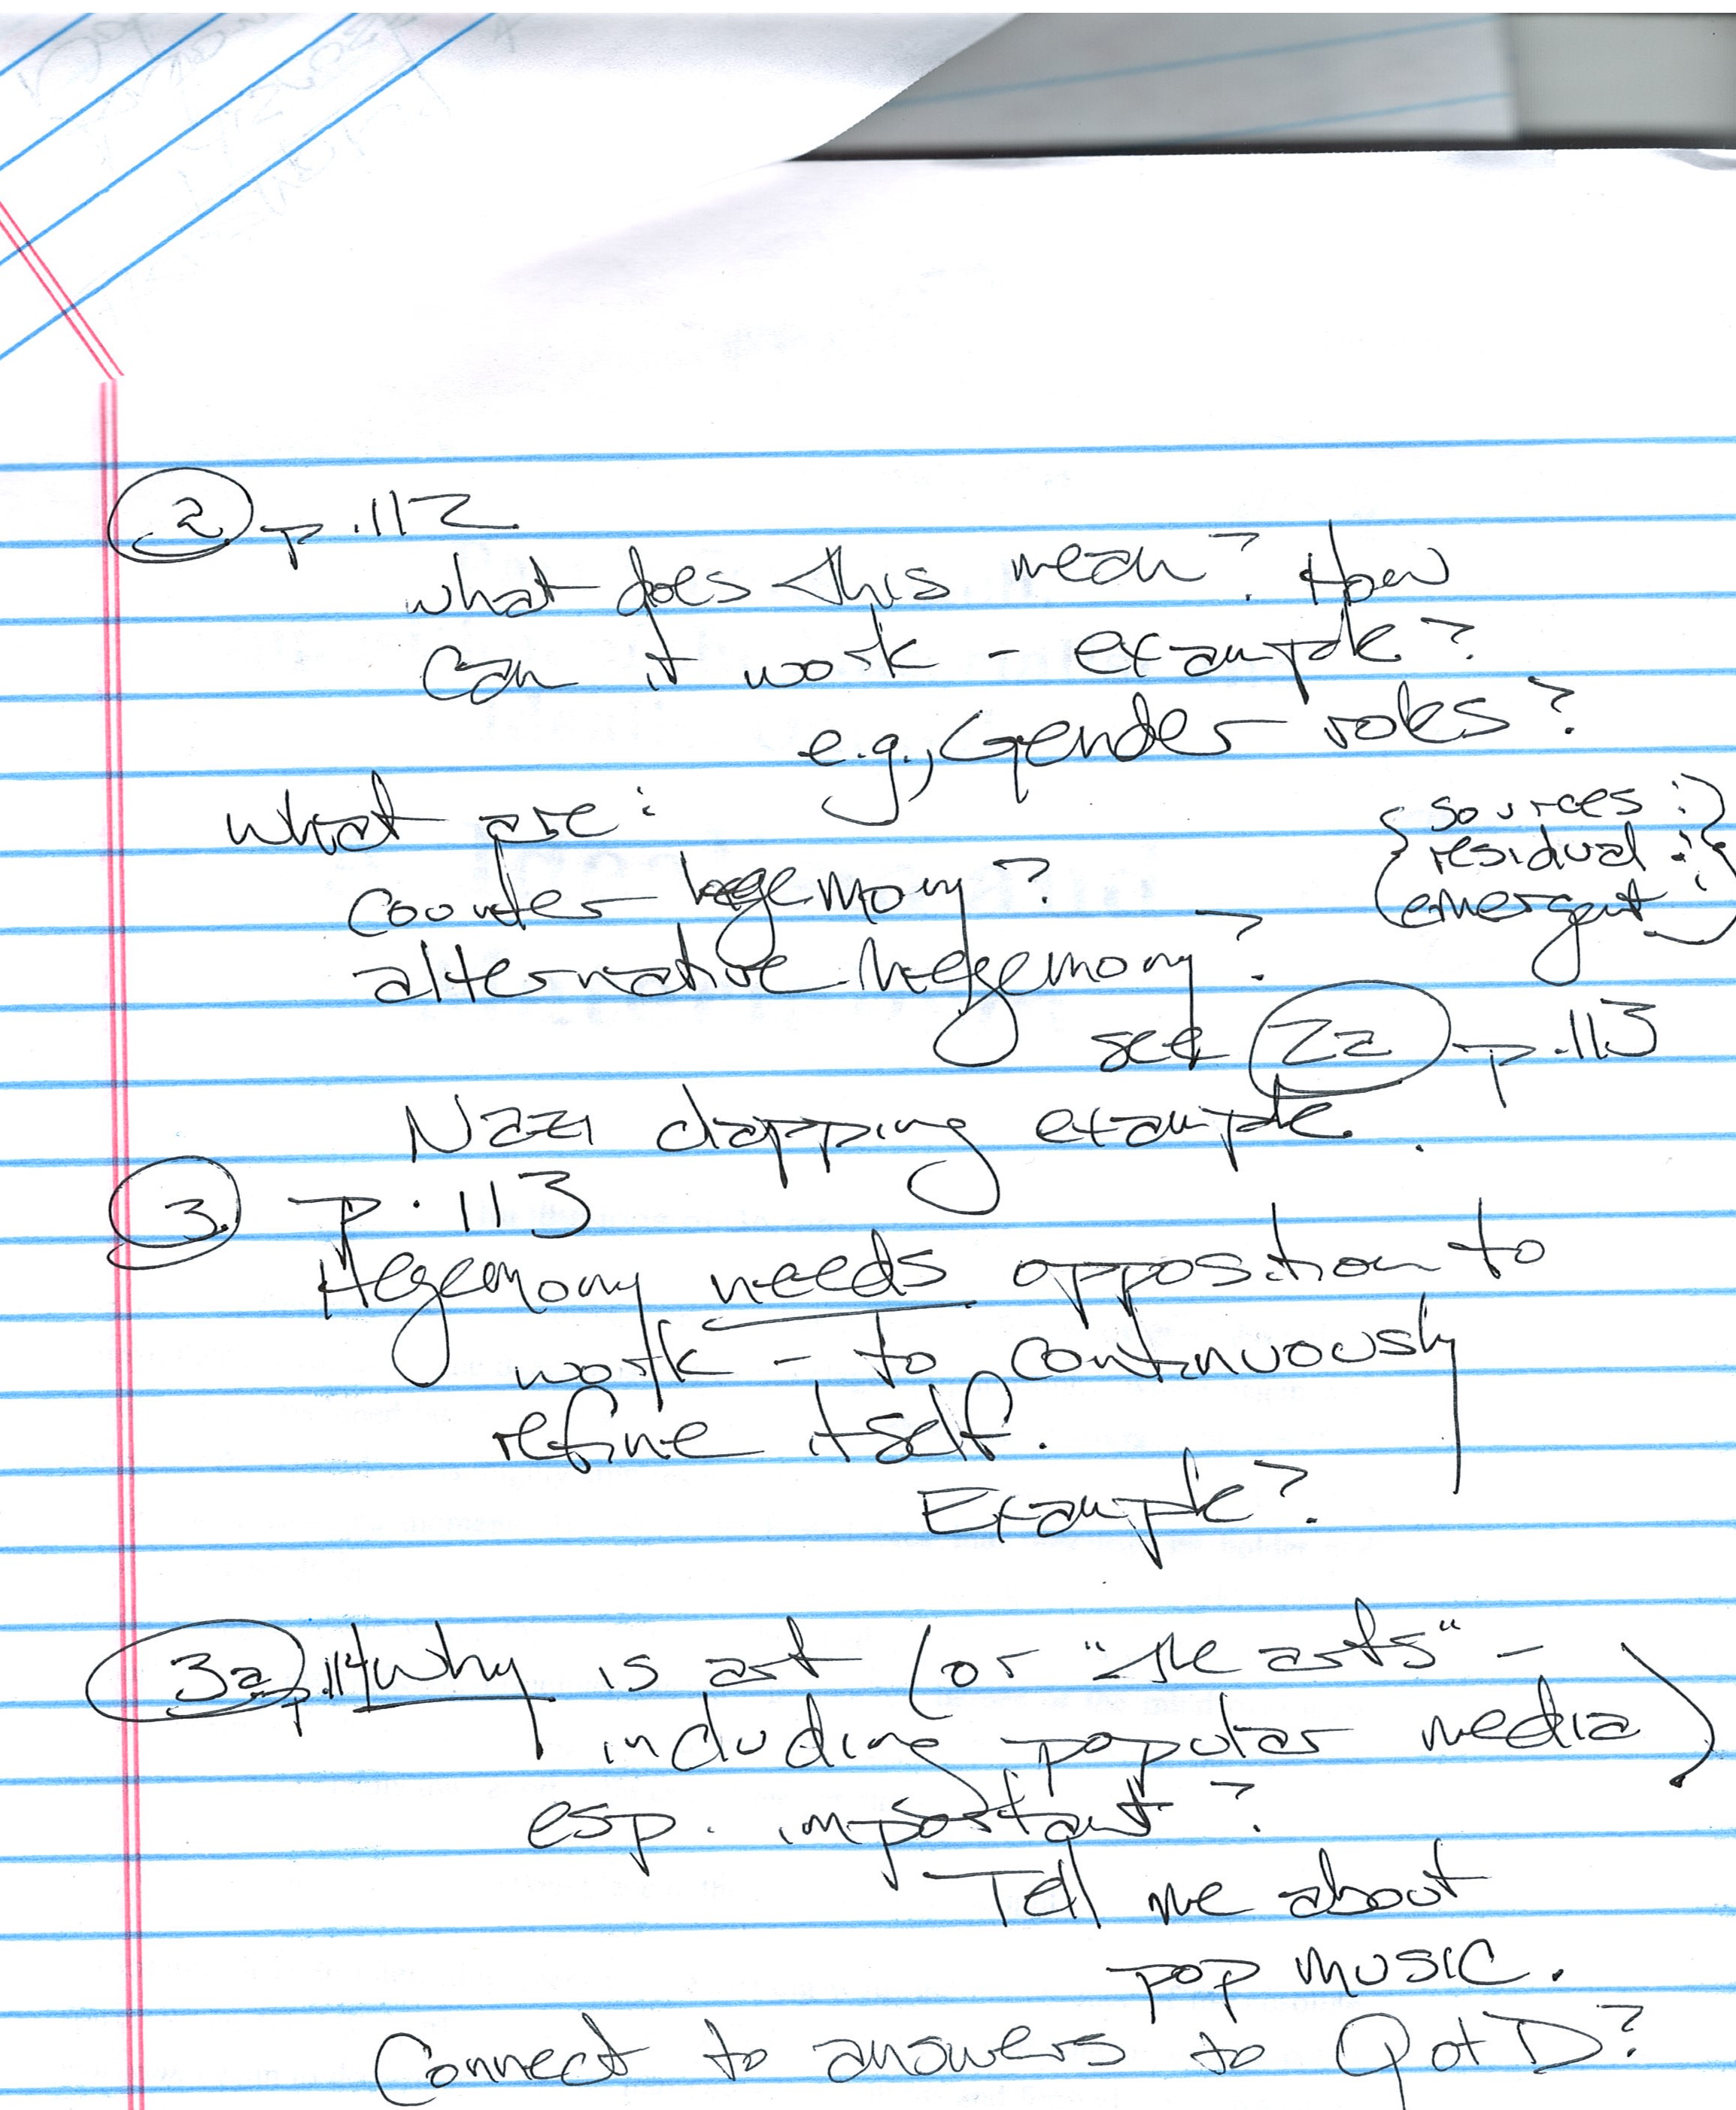 ② p.112
what does this mean? How
can it work - example?
e.g., Gender roles?
what are:
{ sources : }
{ residual : }
{ emergent : }
counter-hegemony?
alternative hegemony?
see 2a p.113
Nazi clapping example.
③. p.113
Hegemony needs opposition to
work - to continuously
refine itself.
Example?
3a p.114 Why is art (or "the arts" -
including popular media)
esp. important?
Tell me about
pop music.
Connect to answers to QotD?